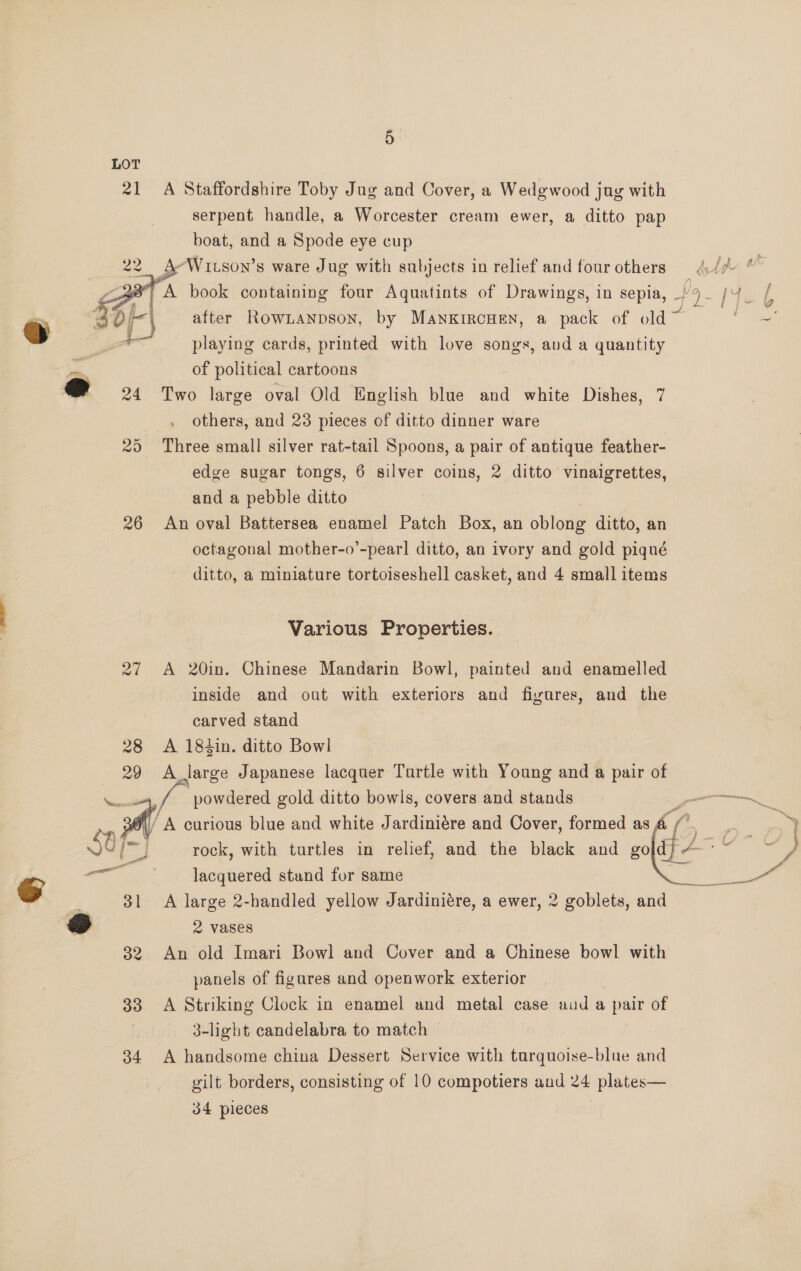 5
LOT
21 A Staffordshire Toby Jug and Cover, a Wedgwood jug with
serpent handle, a Worcester cream ewer, a ditto pap
boat, and a Spode eye cup
22 A WILSON'S ware Jug with subjects in relief and four others
23 A book containing four Aquatints of Drawings, in sepia,
30/- after ROWLANDSON, by MANKIRCHEN, a pack of old
playing cards, printed with love songs, and a quantity
of political cartoons
24 Two large oval Old English blue and white Dishes, 7
others, and 23 pieces of ditto dinner ware
25 Three small silver rat-tail Spoons, a pair of antique feather-
edge sugar tongs, 6 silver coins, 2 ditto vinaigrettes,
and a pebble ditto
26 An oval Battersea enamel Patch Box, an oblong ditto, an
octagonal mother-o'-pearl ditto, an ivory and gold piqué
ditto, a miniature tortoiseshell casket, and 4 small items
Various Properties.
27 A 20in. Chinese Mandarin Bowl, painted and enamelled
inside and out with exteriors and figures, and the
carved stand
28 A 18½in. ditto Bowl
29 A large Japanese lacquer Turtle with Young and a pair of
powdered gold ditto bowls, covers and stands
30 A curious blue and white Jardiniére and Cover, formed as a
rock, with turtles in relief, and the black and gold
lacquered stand for same
31 A large 2-handled yellow Jardiniére, a ewer, 2 goblets, and
2 vases
32 An old Imari Bowl and Cover and a Chinese bowl with
panels of figures and openwork exterior
33 A Striking Clock in enamel and metal case and a pair of
3-light candelabra to match
34 A handsome china Dessert Service with turquoise-blue and
gilt borders, consisting of 10 compotiers and 24 plates—
34 pieces